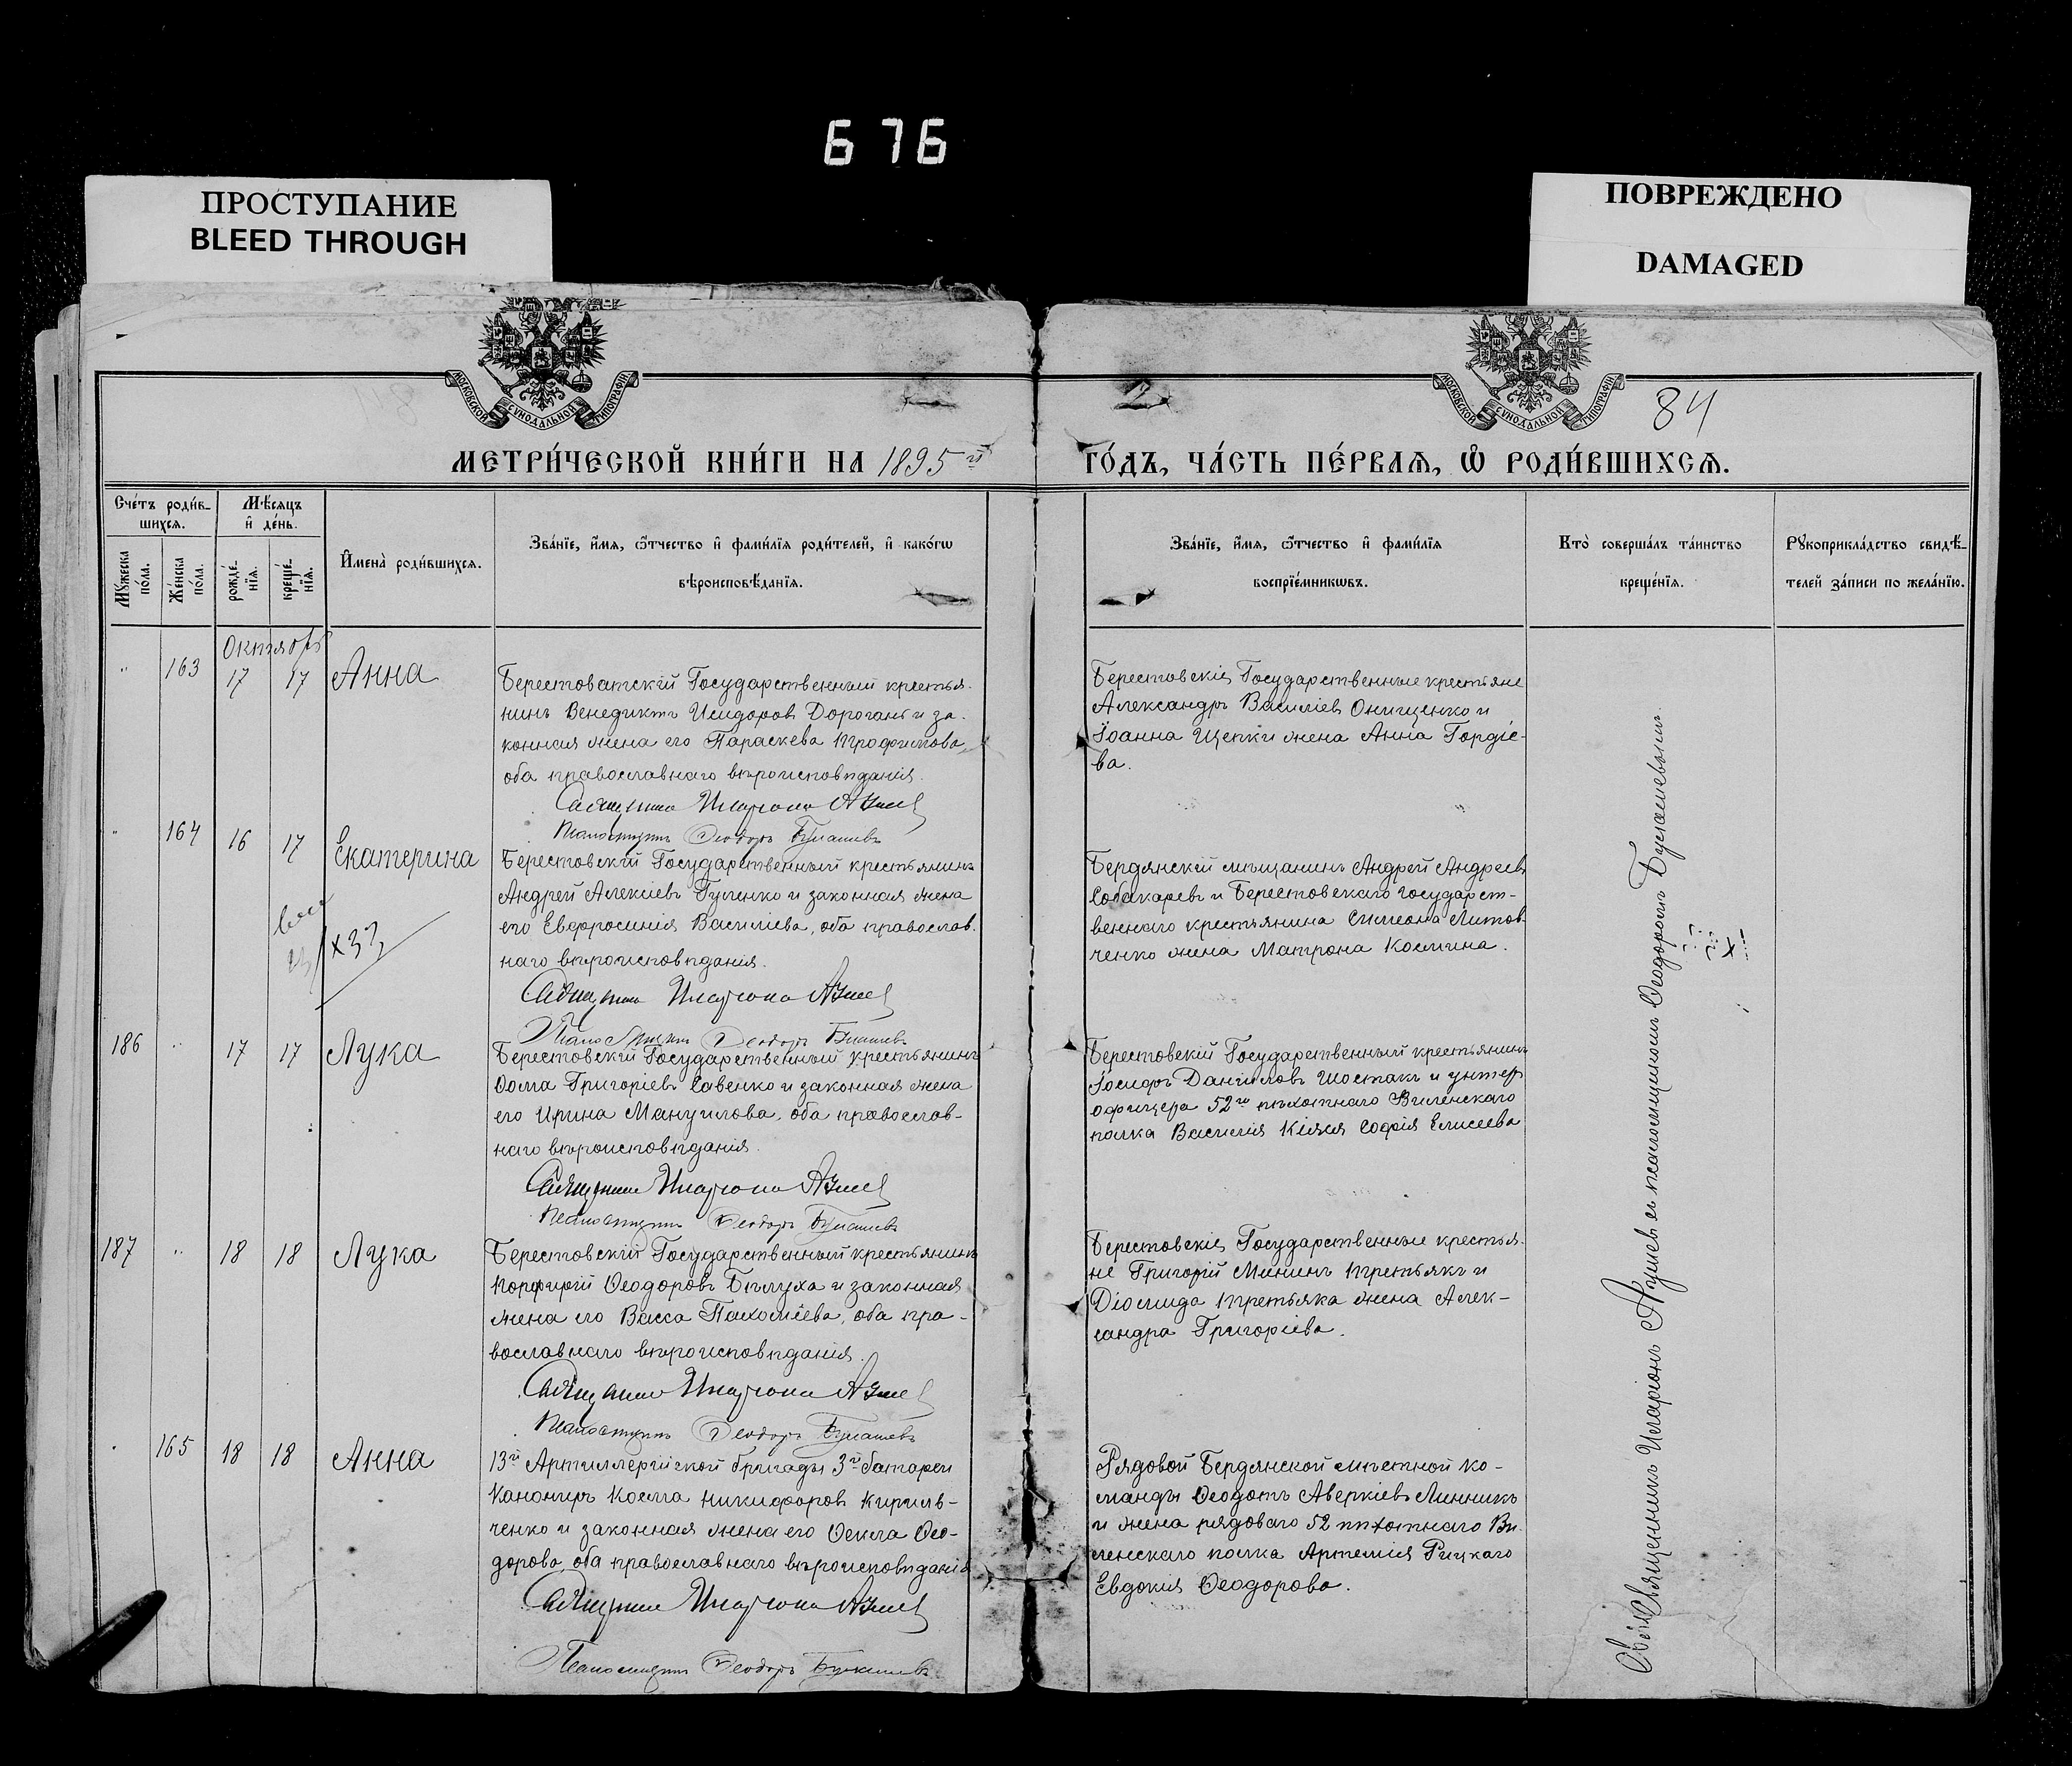 676
ПРОСТУПАНИЕ
BLEED THROUGH
ПОВРЕЖДЕНО
DAMAGED
МОСКОВСКОЙ СѴНОДАЛЬНОЙ ТИПОГРАФІИ
МОСКОВСКОЙ СѴНОДАЛЬНОЙ ТИПОГРАФІИ
84
МЕТРИ́ЧЕСКОЙ КНИ́ГИ НА 1895 й
ГО́ДЪ, ЧА́СТЬ ПЕ́РВАѦ, Ѡ҆ РОДИ́ВШИХСѦ.
Сче́тъ роди́в-
шихсѧ.
Мѣ́сяцъ
и҆ де́нь.
Мꙋ́жеска
по́ла.
Же́нска
по́ла.
рожде́-
нїѧ.
креще́-
нїѧ.
И҆мена̀ роди́вшихсѧ.
Зва́нїе, и҆́мѧ, ѻ҆́тчество и҆ фами́лїѧ роди́телей, и҆ како́гѡ
вѣроисповѣ́данїѧ.
Зва́нїе, и҆́мѧ, ѻ҆́тчество и҆ фами́лїѧ
воспрїе́мникѡвъ.
Кто̀ соверша́лъ та́инство
креще́нїѧ.
Рꙋкоприкла́дство свидѣ́-
телей за́писи по жела́нїю.
Октябрь
" 163 17 17 Анна
Берестоватскій Государственный крестья-
нинъ Венедиктъ Исидоровъ Дорогань и за-
конная жена его Параскева Трофимова,
оба православнаго вѣроисповѣданія.
Священникъ Иларіонъ Азиев
Псаломщикъ Ѳеодоръ
Берестовскіе Государственные крестьяне
Александръ Василіевъ Онищенко и
Іоанна Щепки жена Анна Гордіе-
ва.
" 164 16 17 Екатерина
Берестовскій Государственный крестьянинъ
Андрей Алексіевъ Гуленко и законная жена
его Евфросинія Василіева, оба православ-
наго вѣроисповѣданія.
Священникъ Иларіонъ Азиев
Псаломщикъ Ѳеодоръ
Бердянскій мѣщанинъ Андрей Андреевъ
Собакаревъ и Берестовскаго Государст-
веннаго крестьянина Симеона Литов-
ченко жена Матрона Космина.
х33
186 " 17 17 Лука
Берестовскій Государственный крестьянинъ
Ѳома Григоріевъ Савенко и законная жена
его Ирина Мануилова, оба православ-
наго вѣроисповѣданія.
Священникъ Иларіонъ Азиев
Псаломщикъ Ѳеодоръ
Берестовскій Государственный крестьянинъ
Іосифъ Даніиловъ Шостакъ и унтеръ
офицера 52го пѣхотнаго Виленскаго
полка Василія Кіяся Софія Елисеева
187 " 18 18 Лука
Берестовскій Государственный крестьянинъ
Порфирій Ѳеодоровъ Бѣлуха и законная
жена его Васса Пахоміева, оба пра-
вославнаго вѣроисповѣданія.
Священникъ Иларіонъ Азиев
Псаломщикъ Ѳеодоръ
Берестовскіе Государственные крестья-
не Григорій Мининъ Третьякъ и
Діомида Третьяка жена Алек-
сандра Григоріева.
" 165 18 18 Анна
13й Артиллерійской бригады 3й батареи
Канониръ Косма Никифоровъ Кириль-
ченко и законная жена его Ѳекла Ѳео-
дорова, оба православнаго вѣроисповѣданія
Священникъ Иларіонъ Азиев
Псаломщикъ Ѳеодоръ
Рядовой Бердянской мѣстной ко-
манды Ѳеодотъ Аверкіевъ Линникъ
и жена рядоваго 52 пѣхотнаго Ви-
ленскаго полка Артемія Рицкаго
Евдокія Ѳеодорова.
Священникъ Иларіонъ съ псаломщикомъ Ѳеодоромъ